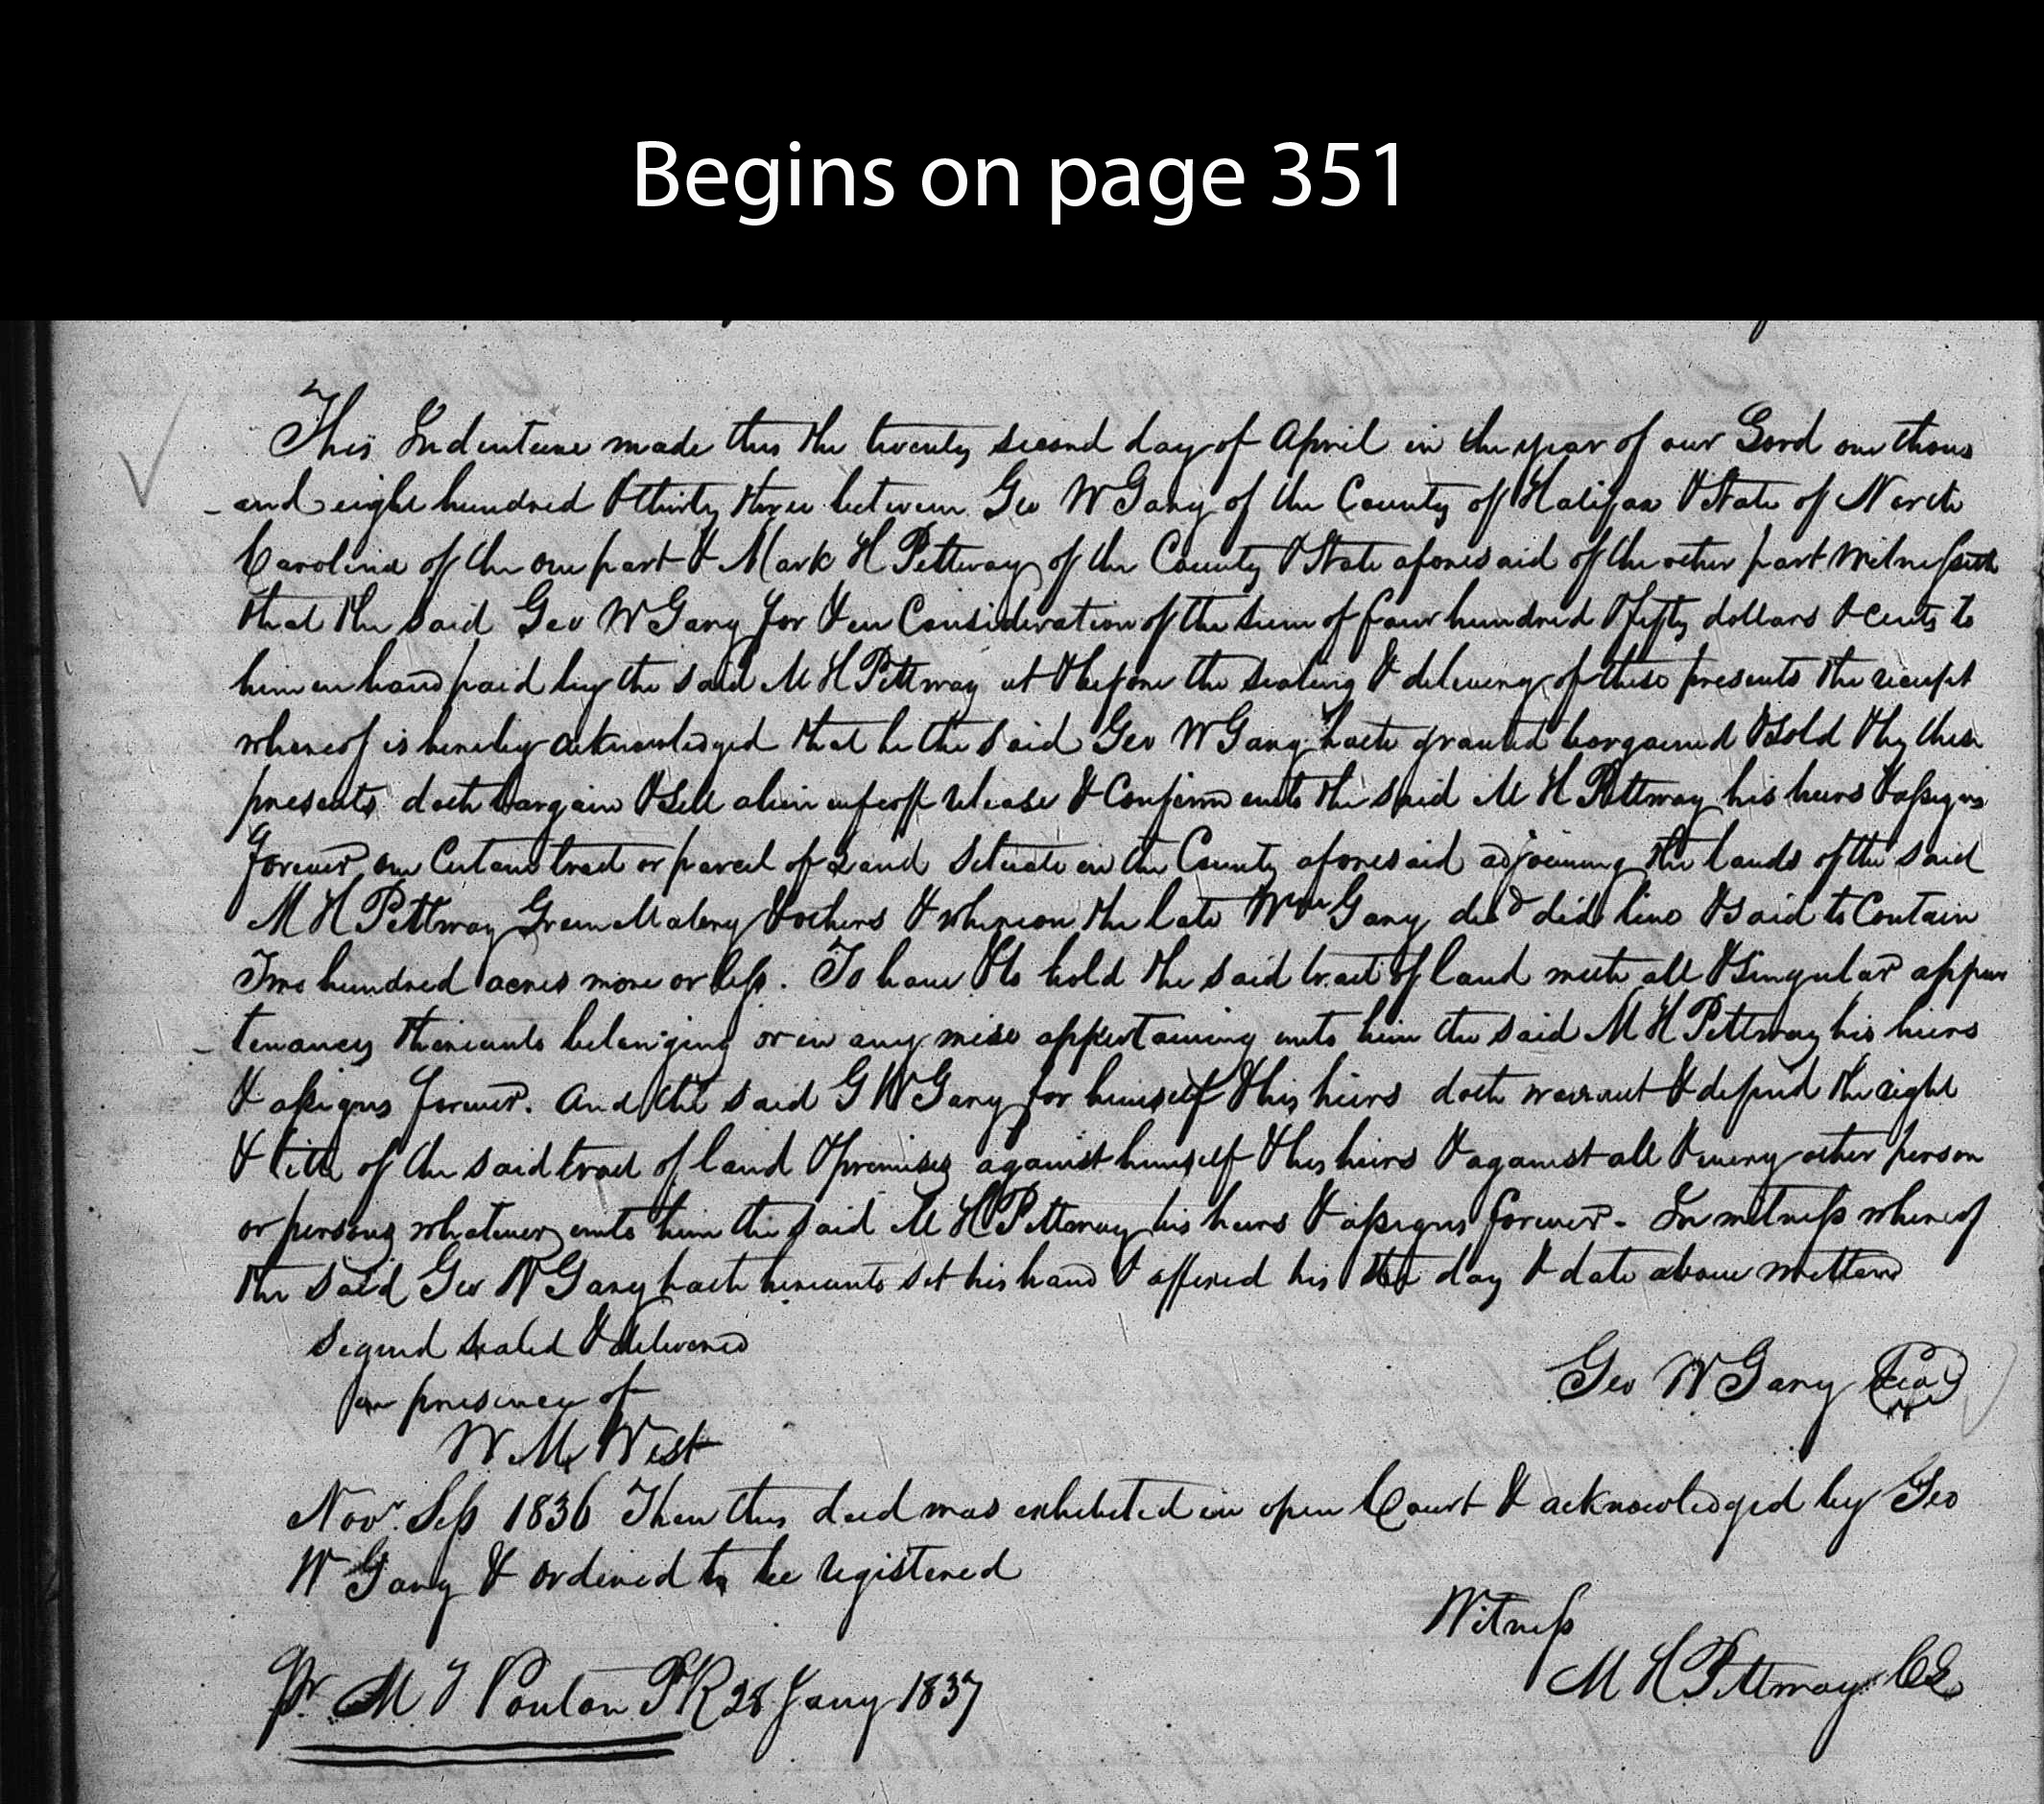 Begins on page 351
This Indenture made this the twenty second day of April in the year of our Lord one thous
-and eight hundred & thirty three between Geo W Gary of the County of Halifax & State of North
Carolina of the one part & Mark H Pettway of the County & State aforesaid of the other part Witnesseth
that the said Geo W Gary for & in Consideration of the sum of four hundred & fifty dollars & cents to
him in hand paid by the said M H Pettway at & before the sealing & delivery of these presents the receipt
whereof is hereby acknowledged that he the said Geo W Gary hath granted bargained & sold & by these
presents doth bargain & sell alien enfeoff release & Confirm unto the said M H Pettway his heirs & assigns
forever one Certain tract or parcel of Land Situate in the County aforesaid adjoining the lands of the said
M H Pettway Green Malory & others & whereon the late Wm Gary decd did live & said to Contain
Two hundred acres more or less. To have & to hold the said tract of land with all & singular appur
-tenancy thereunto belonging or in any wise appertaining unto him the said M H Pettway his heirs
& assigns forever. And the said G W Gary for himself & his heirs doth warrant & defend the right
& title of the said tract of land & premises against himself & his heirs & against all & every other person
or persons whatever unto him the said M H Pettway his heirs & assigns forever - In witness whereof
the said Geo W Gary hath hereunto set his hand & affixed his the day & date above written
Signed sealed & delivered
in presence of
Geo W Gary Seal
W. M. West
Novr Sess 1836 Then this deed was exhibited in open Court & acknowledged by Geo
W Gary & ordered to be registered
Witness
Pr. M T Ponton PR 28 Jany 1837
M H Pettway Clk